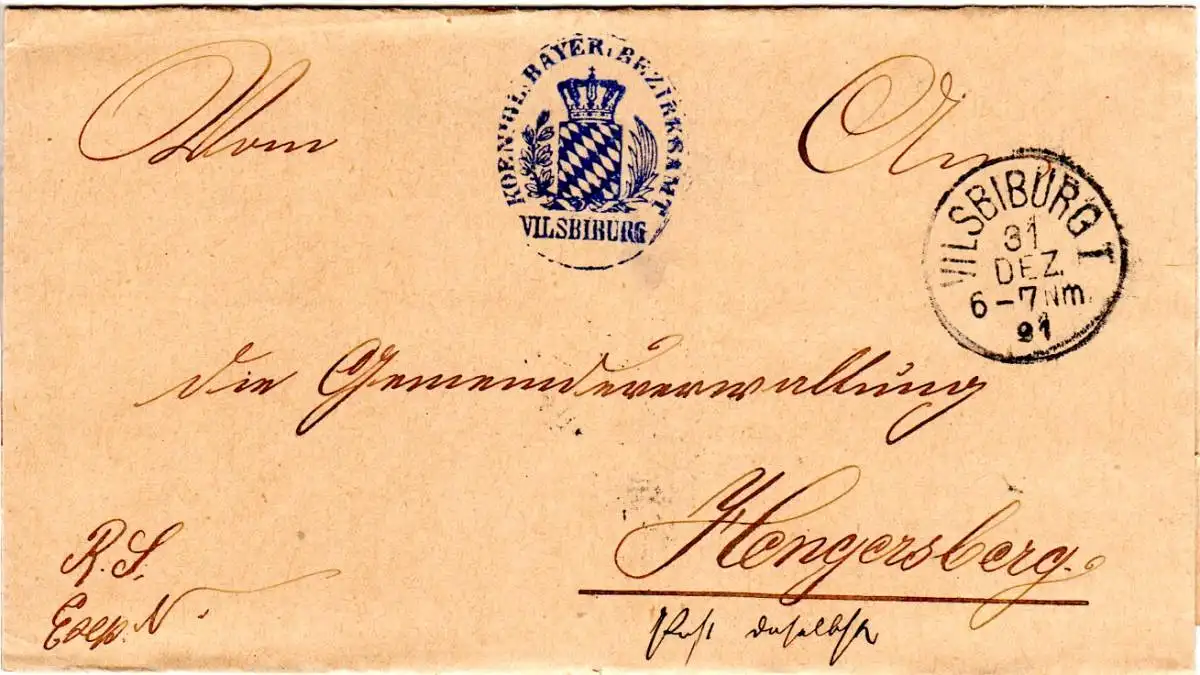 Vom
KOENIGL. BAYER. BEZIRKSAMT
VILSBIBURG
An
VILSBIBURG I
31
DEZ.
6-7 Nm.
91
die Gemeindeverwaltung
Hengersberg.
R. S.
Exp. N.
Post daselbst